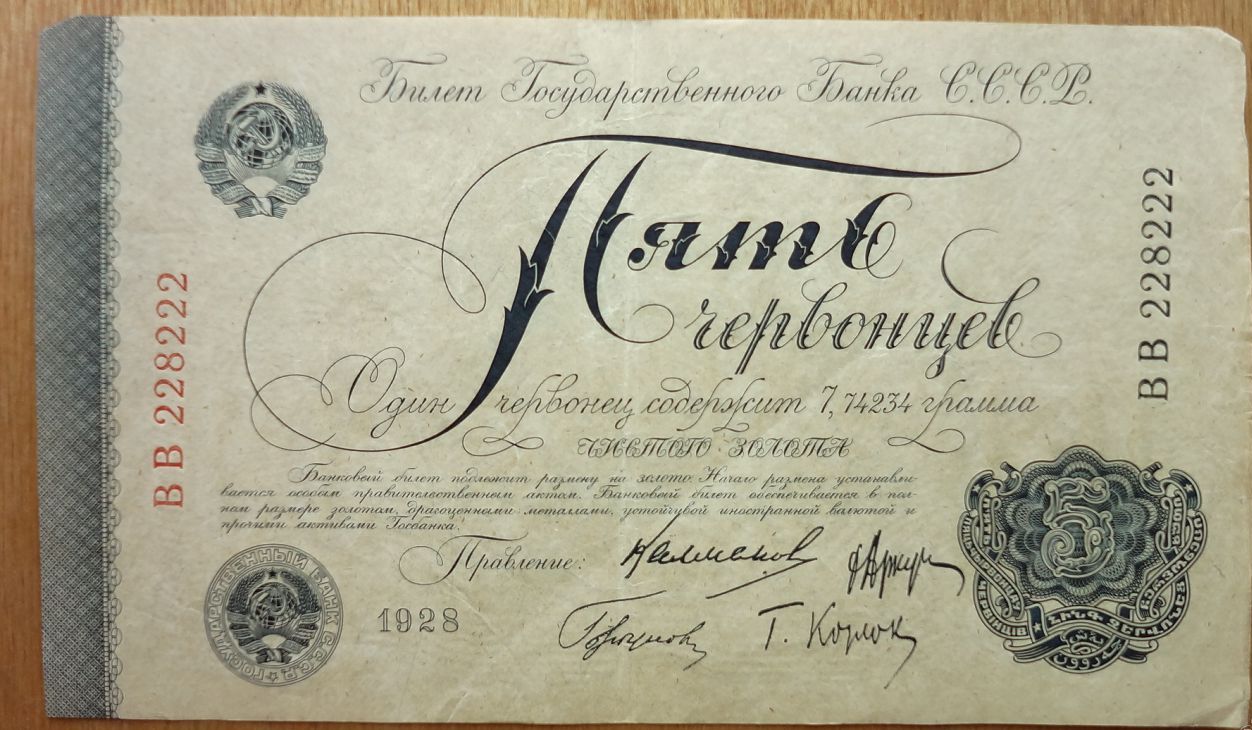 Билет Государственного Банка С.С.С.Р.
Пять
червонцев
ВВ 228222
ВВ 228222
Один червонец содержит 7,74234 грамма
ЧИСТОГО ЗОЛОТА
Банковый билет подлежит размену на золото. Начало размена устанавли-
вается особым правительственным актом. Банковый билет обеспечивается в пол-
ном размере золотом, драгоценными металлами, устойчивой иностранной валютой и
прочими активами Госбанка.
Правление:
1928
ГОСУДАРСТВЕННЫЙ БАНК С.С.С.Р.
Т. Корлок
5